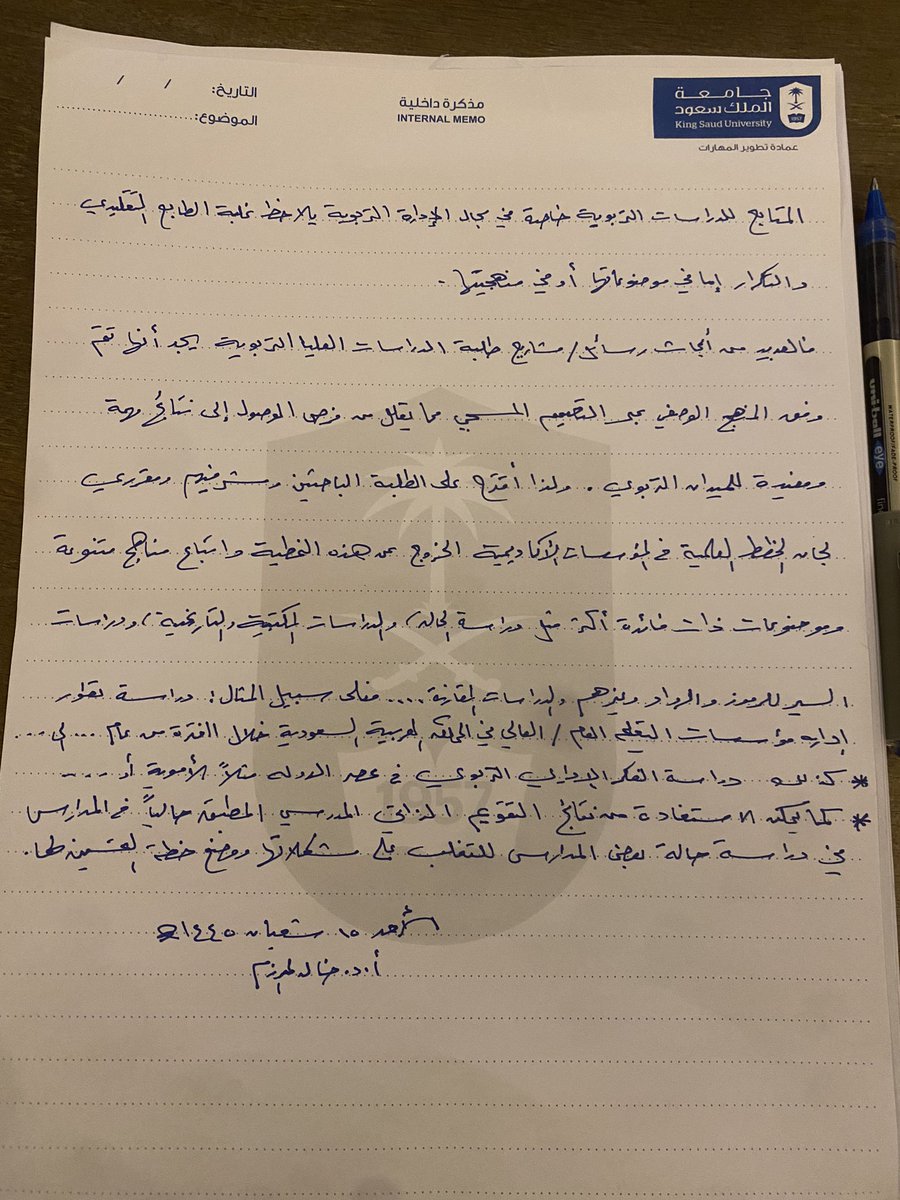 جامعة
الملك سعود
King Saud University
1957
عمادة تطوير المهارات
مذكرة داخلية
INTERNAL MEMO
التاريخ: / /
الموضوع:
المتابع للدراسات التربوية خاصة في مجال الإدارة التربوية يلاحظ غلبة الطابع التقليدي
والتكرار إما في موضوعاتها أو في منهجيتها .
فالعديد من أبحاث رسائل / مشاريع طلبة الدراسات العليا التربوية يجد أنها تتم
وفق المنهج الوصفي عبر التصميم المسحي مما يقلل من فرص الوصول إلى نتائج مهمة
ومفيدة للميدان التربوي . ولذا أقترح على الطلبة الباحثين ومشرفيهم ومقرري
لجان الخطط العلمية في المؤسسات الأكاديمية الخروج عن هذه النمطية واتباع مناهج متنوعة
وموضوعات ذات فائدة أكثر مثل دراسة الحالة) والدراسات المكتبية والتاريخية) ودراسات
السير للرموز والرواد وغيرهم والدراسات المقارنة .... فعلى سبيل المثال: دراسة تطور
إدارة مؤسسات التعليم العام / العالي في المملكة العربية السعودية خلال الفترة من عام .... إلى ....
* كذلك دراسة الفكر الإداري التربوي في عصر الدولة مثلاً الأموية أو ....
* كما يمكن الاستفادة من نتائج التقويم الذاتي المدرسي المطبق حالياً في المدارس
في دراسة حالة بعض المدارس للتغلب على مشكلاتها ووضع خطة التحسين لها.
الأحد ١٥ شعبان ١٤٤٥هـ
أ.د. خالد
1957
uni-ball eye